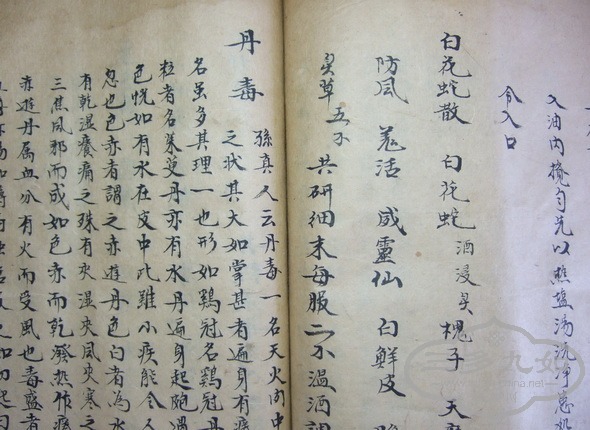 入油內攪勻先以熱鹽湯洗淨患處
令入口
白花蛇散 白花蛇 酒浸炙 槐子 天
防風 羌活 威靈仙 白鮮皮
炙草 五分 共研細末每服二分溫酒調
丹毒
孫真人云丹毒一名天火肉中
之狀其大如掌甚者遍身有
名虽多其理一也形如鷄冠名鷄冠丹
粒者名茱萸丹亦有水丹遍身起皰遇
色恍如有水在皮中此雖小疾能令人
忽也色赤者謂之赤遊丹色白者為水
有乾溼癢痛之殊有夾溼夾風夾寒之
三焦風邪而成如色赤而乾發熱作癢
赤遊丹属血分有火而受風也毒盛者